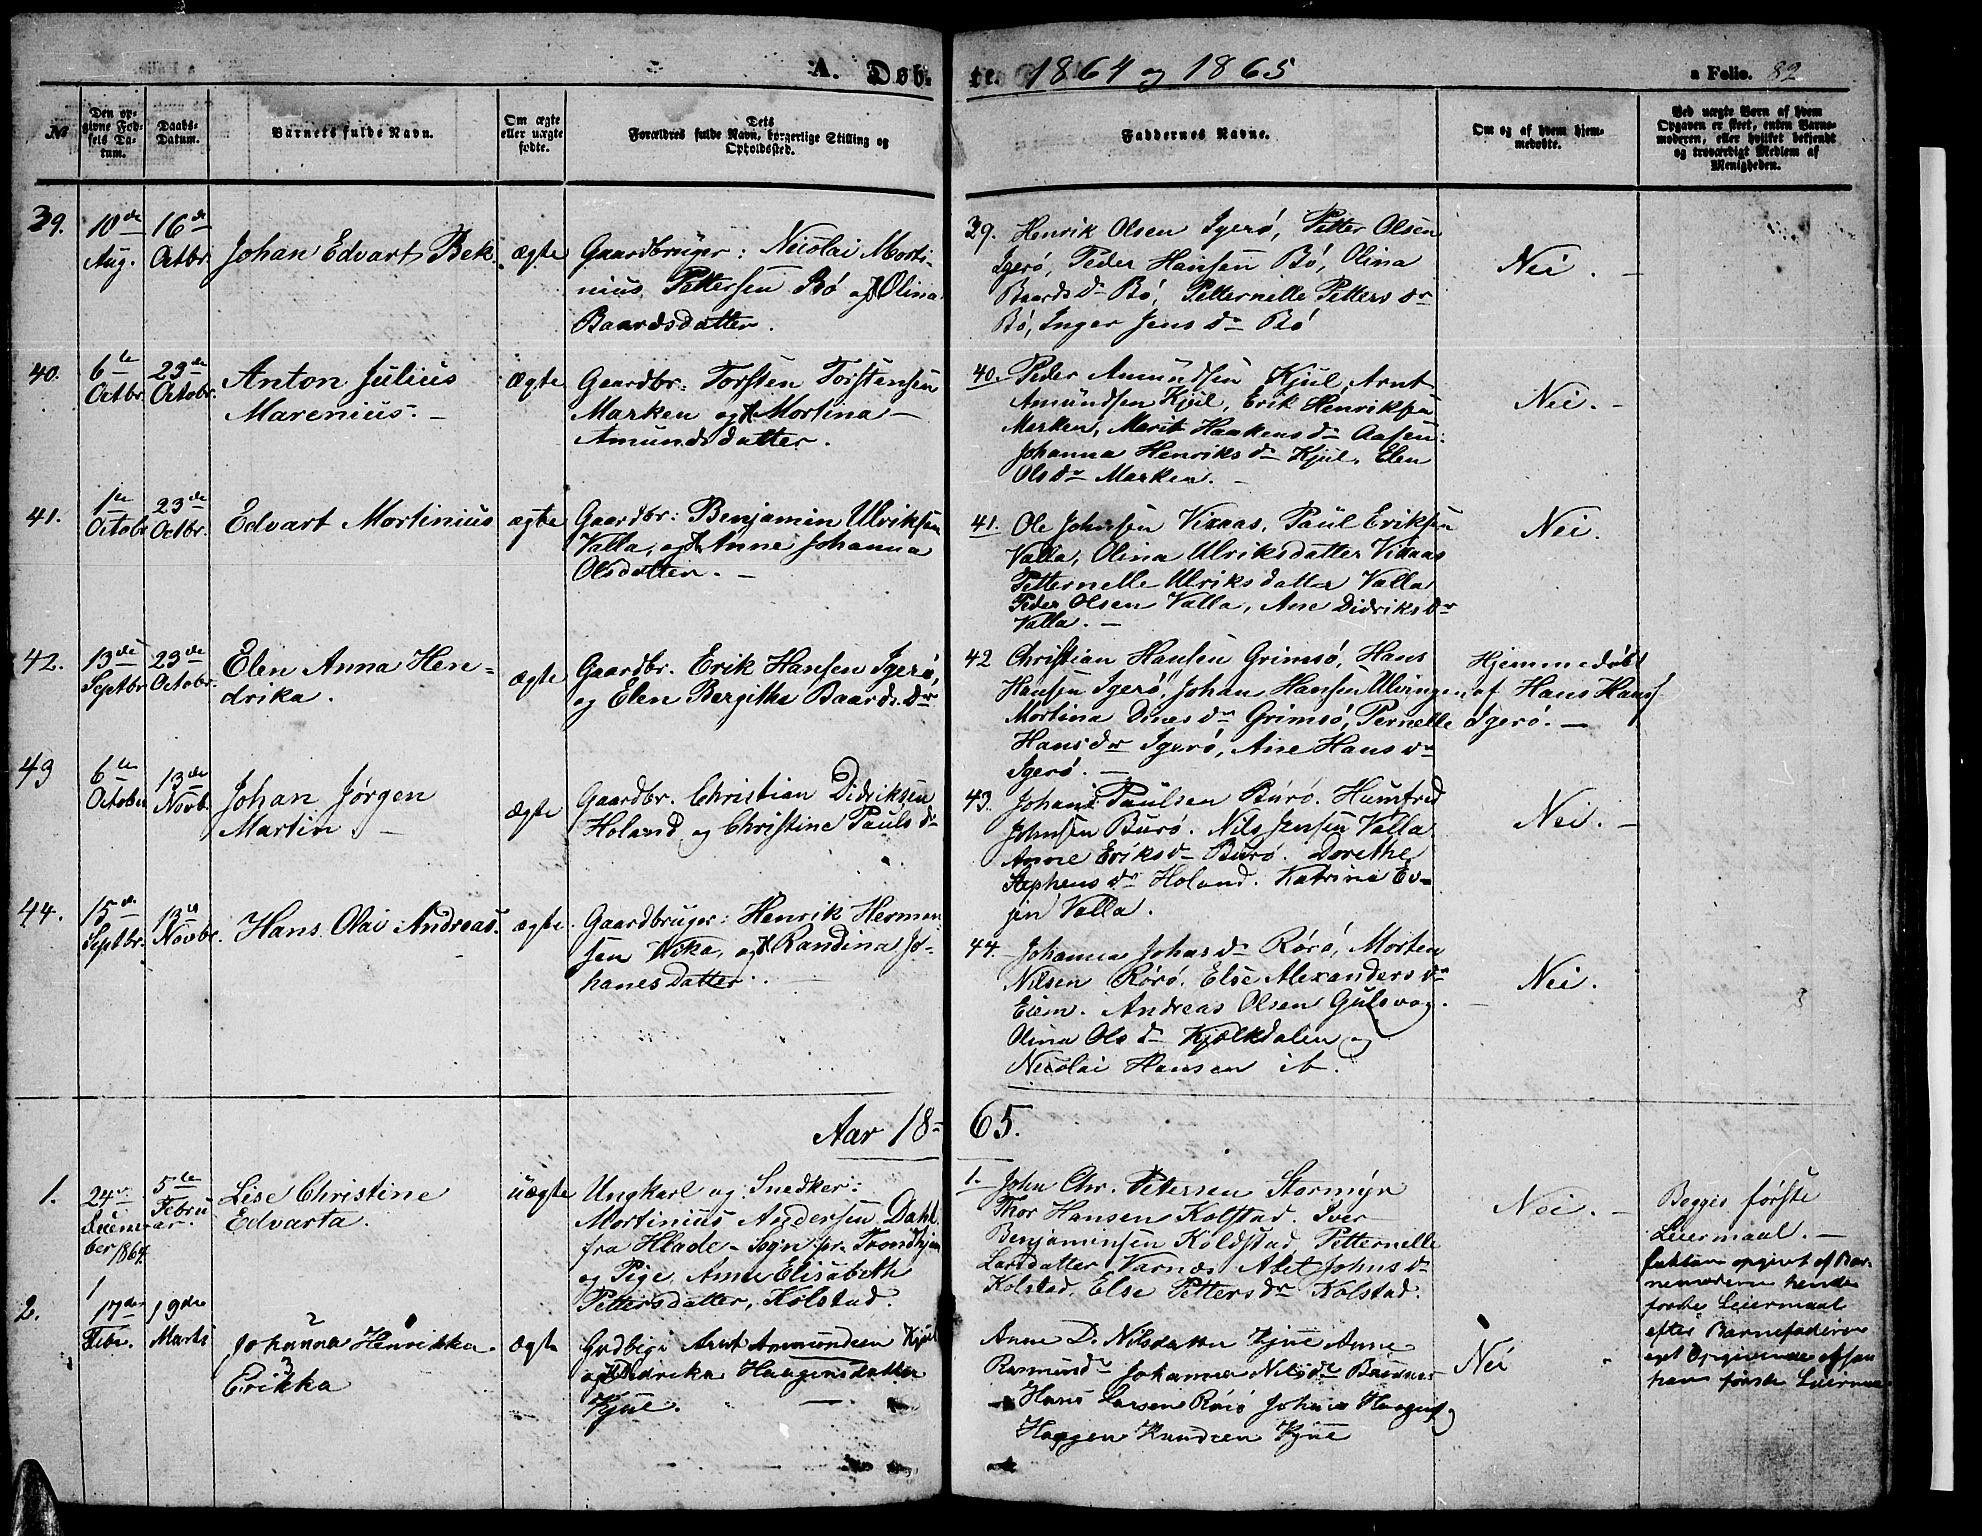 A. Døb-
te. 1864 og 1865
a Folio. 82
№
Den op-
givne Fød-
sels Da-
tum.
Daabs-
Datum.
Barnets fulde Navn.
Om ægte
eller uægte
fødte.
Dets
Forældres fulde Navn, borgerlige Stilling og
Opholdssted.
Faddernes Navne.
Om og af hvem hjem-
medøbte.
Ved uægte Børn af hvem
Opgaven er skeet, enten Barne-
moderen, eller hvilket bekjendt
og troværdigt Medlem af
Menigheden.
39.
10de
Aug.
16de
Octbr
Johan Edvart Bek.
ægte
Gaardbruger: Nicolai Morti-
nius Pettersen Bø og Olina
Baardsdatter.
39. Henrik Olsen Igerø, Petter Olsen
Igerø, Peder Hansen Bø, Olina
Baardsdr Bø, Petternelle Pettersdr
Bø, Inger Jensdr Bø
Nei.
40.
6te
Octbr
23de
Octobr.
Anton Julius
Marenius.
Ægte
Gaardbr. Torsten Torstensen
Marken og Mortina
Amundsdatter.
40. Peder Amundsen Kjul, Arnt
Amundsen Kjul, Erik Henriksen
Marken, Marit Haakensdr Aasen.
Johanna Henriksdr Kjul, Elen
Olsdr Marken.
Nei.
41.
1te
Octobr
23de
Octbr.
Edvart Mortinius
ægte
Gaardbr: Benjamin Ulriksen
Valla, og Anne Johanna
Olsdatter.
41. Ole Johnsen Vixaas, Paul Eriksen
Valla, Olina Ulriksdatter Vixaas
Petternelle Ulriksdatter Valla
Peder Olsen Valla, Ane Didriksdr
Valla.
Nei.
42.
13de
Septbr
23de
Octobr.
Elen Anna Hen-
drika.
ægte
Gaardbr. Erik Hansen Igerø,
og Elen Bergitha Baardsdr
42 Christian Hansen Grimsø, Hans
Hansen Igerø, Johan Hansen Ulvingen
Mortina Dinesdr Grimsø, Pernelle
Hansdr Igerø, Ane Hansdr
Igerø.
Hjemmedøbt
af Hans Hans.
Igerø.
43
6te
October
13de
Novb.
Johan Jørgen
Martin
ægte
Gaardbr. Christian Didriksen
Holand og Christine Paulsdr
43. Johan Paulsen Burø. Humfred
Johnsen Burø. Nils Jensen Valla
Anne Eriksdr Burø. Dorethe
Stephensdr Holand. Katrine Ev-
jen Valla.
Nei.
44.
15de
Septbr.
13de
Novbr.
Hans Olai Andreas.
ægte
Gaardbruger: Henrik Herman
sen Vika, og Randina Jo-
hanesdatter.
44. Johanna Johnsdr Rørø, Morten
Nilsen Rørø. Else Alexandersdr
Eiem. Andreas Olsen Gulsvog.
Olina Olsdr Kjælkdalen og
Nicolai Hansen ib.
Nei.
Aar 18-
65.
1.
24de
Decem-
ber 1864.
5te
Febru
ar.
Lise Christine
Edvarta.
uægte
Ungkarl og Snedker:
Mortinius Andersen Dahl
fra Hlade-Sogn pr. Trondhjem
og Pige Anne Elisabeth
Pettersdatter, Kolstad.
1. John Chr. Petersen Stormyr
Thor Hansen Kolstad. Iver
Benjaminsen Koldstad, Petternelle
Larsdatter Varnæs Abet Johnsdr
Kolstad, Else Pettersdr Kolstad.
Nei.
Begges første
Leiermaal.
faktum opgivet af Bar-
nemoderen hendes
første Leiermaal
efter Barnefaderen
første Leierm
2.
17de
Febr.
19de
Marts
Johanna Henrikka
Erikka
ægte
Gdbr Arnt Ammundsen Kjul
og Didrika Haagensdatter
Kjul.
Anne D. Nilsdatter Kjul Anne
Rasmusdr Johanna Nilsdr
Hans Larsen Rørø Johan
Haagen Knudsen Kjul
Nei